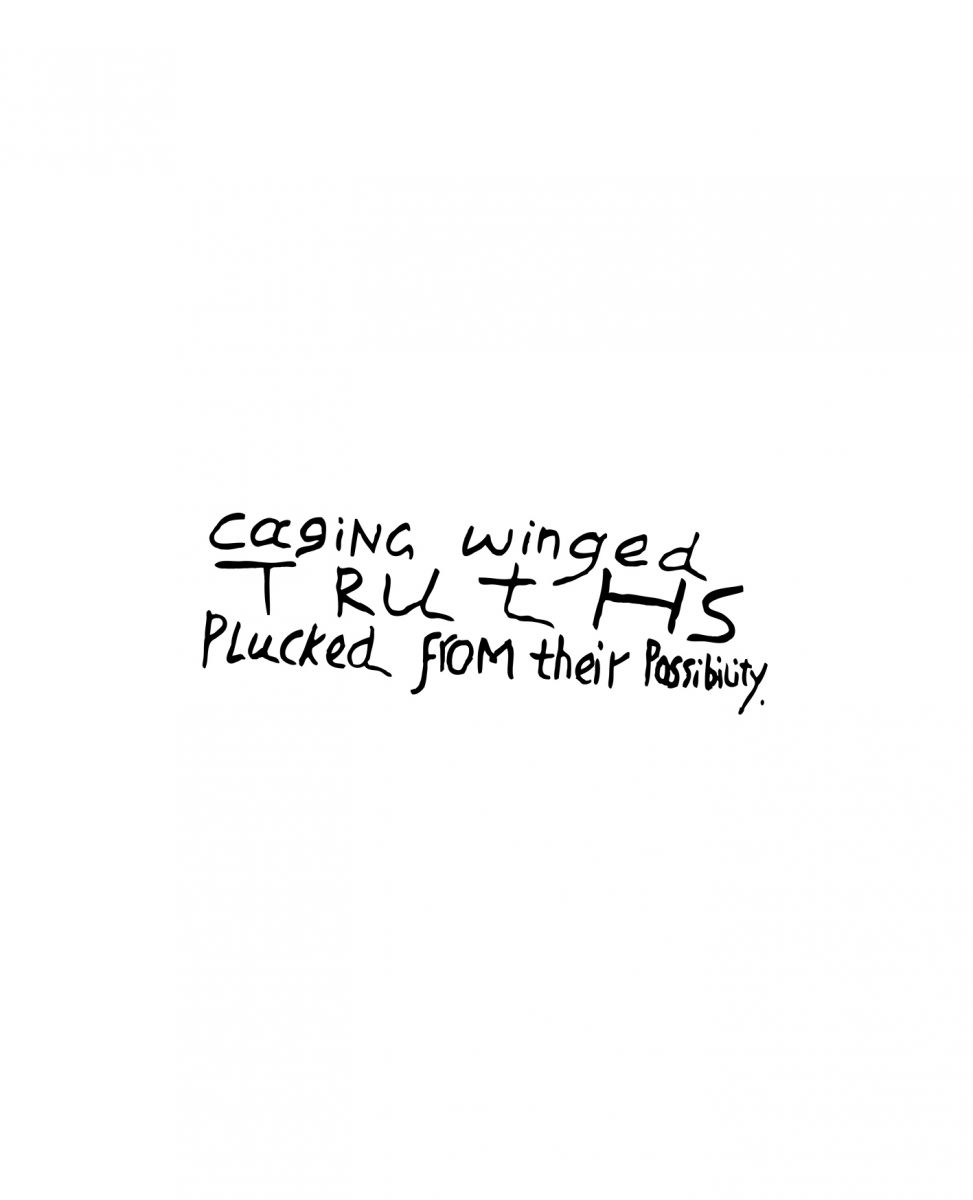 cagiNG winged
TRUtHS
PLucked from their Possibility.